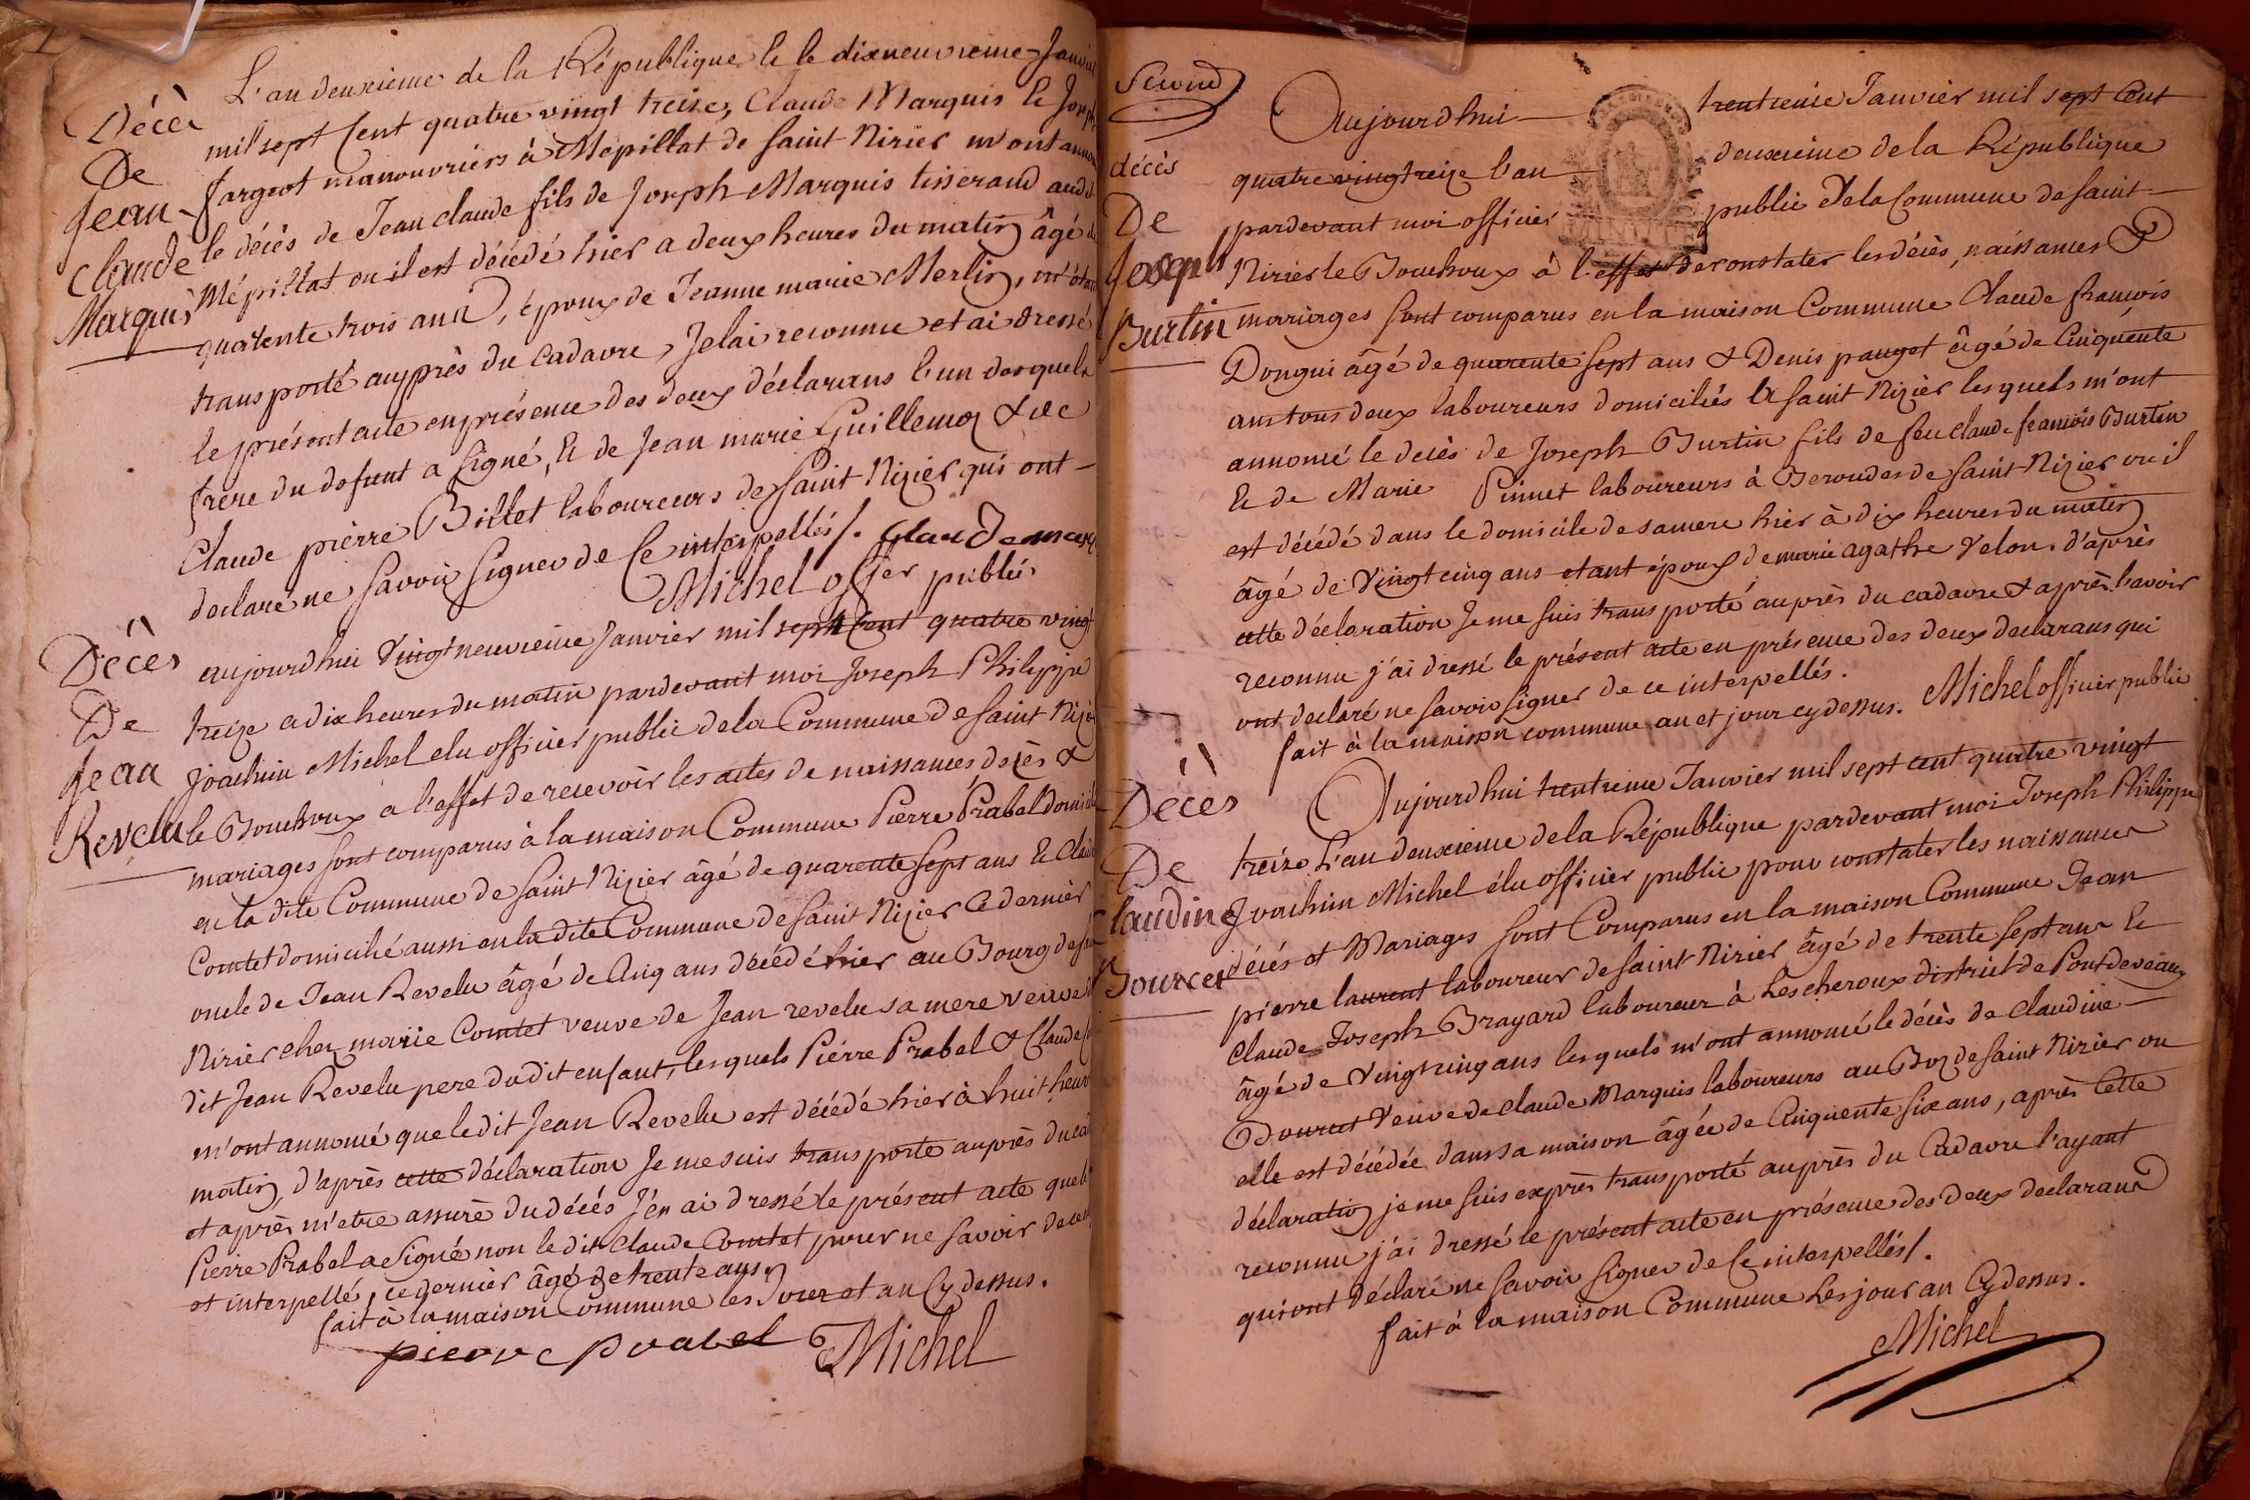 Décès
De
Jean
Claude
Marquis
L'an deuxieme de la République le le dixneuvieme Janvier
mil sept Cent quatre vingt treize, Claude Marquis & Joseph
fargeot manouvriers à Mépillat de Saint Nizier m'ont
le décès de Jean Claude fils de Joseph Marquis tisserand
Mépillat ou il est décédé hier a deux heures du matin âgé de
quarente trois ans, Époux de Jeanne marie Merlin, m'étant
transporté auprès du Cadavre, Je lai reconnu et ai dressé
le présent acte en présence des deux déclarans l'un desquels
frere du defunt a signé, & de Jean marie Guillemoz & de
Claude pierre Billet laboureurs de Saint Nizier qui ont
déclaré ne savoir signer de Ce interpellés /. Claude marq
Michel offier public
Décès
De
Jean
Revelu
aujourdhui Vingt neuvieme Janvier mil sept Cent quatre vingt
treize a dix heures du matin pardevant moi Joseph Philippe
Joachim Michel elu officier public de la Commune de Saint Nizier
le Bouchoux a l'effet de recevoir les actes de naissances décès &
mariages sont comparus à la maison Commune Pierre Prabel domicilié
en la dite Commune de Saint Nizier âgé de quarente sept ans & Claude
Comtet domicilié aussi en la dite Commune de Saint Nizier Ce dernier
oncle de Jean Revelu âgé de Cinq ans décédé hier au Bourg de St
Nizier chez marie Comtet veuve de Jean revelu sa mere veuve du
dit Jean Revelu pere du dit enfant, lesquels Piérre Prabel & Claude
m'ont annoncé que le dit Jean Revelu est décédé hier à huit heures
matin, d'après cette déclaration Je me suis transporté auprès du
et après m'etre assuré du décès J'én ai dressé le présent acte que le
Pierre Prabel a Signé non le dit Claude Comtet pour ne savoir de ce
et interpellé, ce dernier âgé de trente ans
fait à la maison Commune les Jour et an Cy dessus.
pierre prabel Michel
Second
décès
De
Joseph
Burtin
Aujourdhui trentieme Janvier mil sept Cent
quatre vingt treize l'an deuxieme de la République
pardevant moi officier public De la Commune de Saint
Nizier le Bouchoux à l'effet de constater les décès, naissances &
mariages sont comparus en la maison Commune Claude françois
Dongui âgé de quarente sept ans & Denis pauget âgé de Cinquente
ans tous deux laboureurs domiciliés à Saint Nizier lesquels m'ont
annoncé le decès de Joseph Burtin fils de feu Claude françois Burtin
& de Marie Pinnet laboureurs à Beroudes de Saint Nizier ou il
est décédé dans le domicile de sa mere hier à dix heures du matin
âgé de Vingt cinq ans etant époux de marie agathe Velon. d'après
cette déclaration Je me suis transporté auprès du cadavre & après l'avoir
reconnu j'ai dressé le présent acte en présence des deux declarans qui
ont declaré ne savoir signer de ce interpellés.
fait à la maison commune an et jour cy dessus. Michel officier public
Décès
De
laudine
Bourcet
Aujourdhui trentieme Janvier mil sept cent quatre vingt
treize L'an deuxieme de la République pardevant moi Joseph Philippe
Joachim Michel élu officier public pour constater les naissances
décès et Mariages sont Comparus en la maison Commune Jean
pierre laurent laboureur de Saint Nizier âgé de trente sept ans &
Claude Joseph Brayard laboureur à Lescheroux district de Pontdevaux
âgé de Vingt cinq ans lesquels m'ont annoncé le décès de Claudine
Bourcet Veuve de Claude Marquis laboureurs au Boz de Saint Nizier ou
elle est décédée dans sa maison âgée de Cinquente six ans, après Cette
déclaration je me suis exprès transporté auprès du Cadavre l'ayant
reconnu j'ai dressé le présent acte en présence des deux declarans
qui ont déclaré ne savoir signer de Ce interpellés /.
fait à la maison Commune Les jour an Cy dessus.
Michel